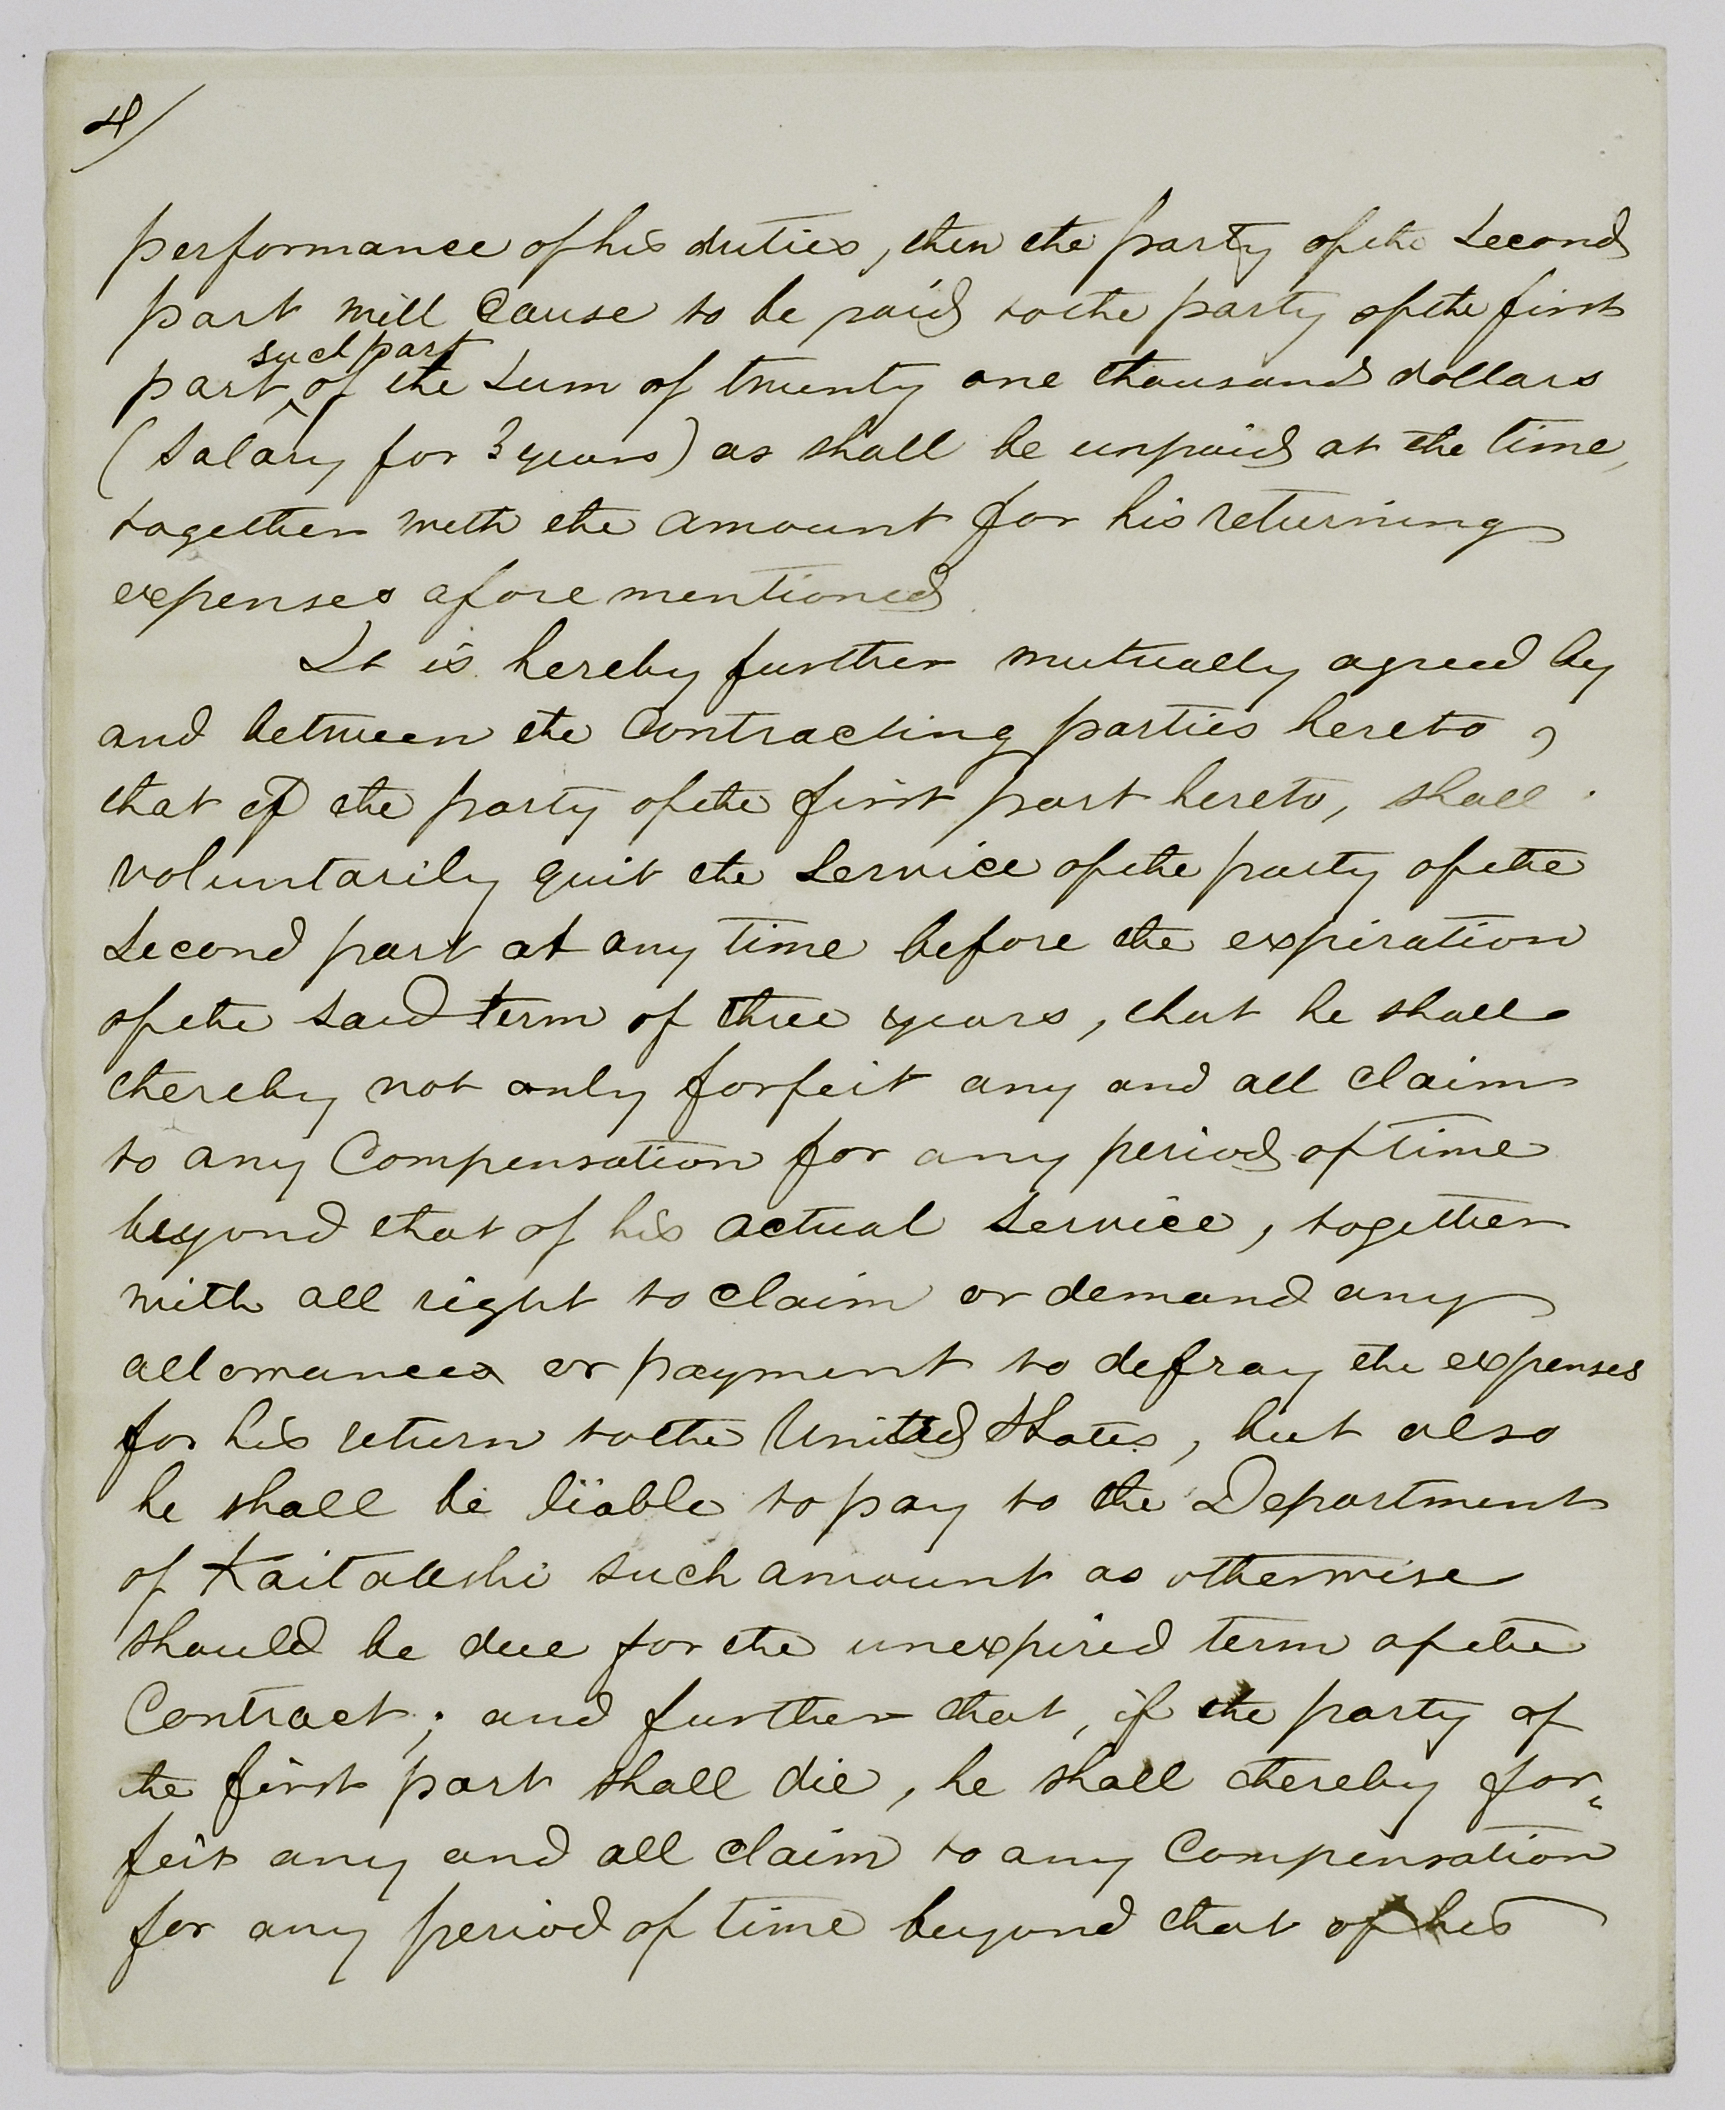 4/
performance of his duties, then the party of the Second
part will cause to be paid to the party of the first
such part
part of the Sum of twenty one thousand dollars
(Salary for 3 years) as shall be unpaid at the time,
together with the amount for his returning
expenses aforementioned
It is hereby further mutually agreed by
and between the Contracting parties hereto,
that if the party of the first part hereto, shall
voluntarily quit the Service of the party of the
Second part at any time before the expiration
of the Said term of three years, that he shall
thereby not only forfeit any and all claim
to any Compensation for any period of time
beyond that of his actual Service, together
with all right to claim or demand any
allowances or payment to defray the expenses
for his return to the United States, but also
he shall be liable to pay to the Department
of Kaitakshi such amount as otherwise
should be due for the unexpired term of the
Contract; and further that, if the party of
the first part shall die, he shall thereby for„
feit any and all claim to any Compensation
for any period of time beyond that of his